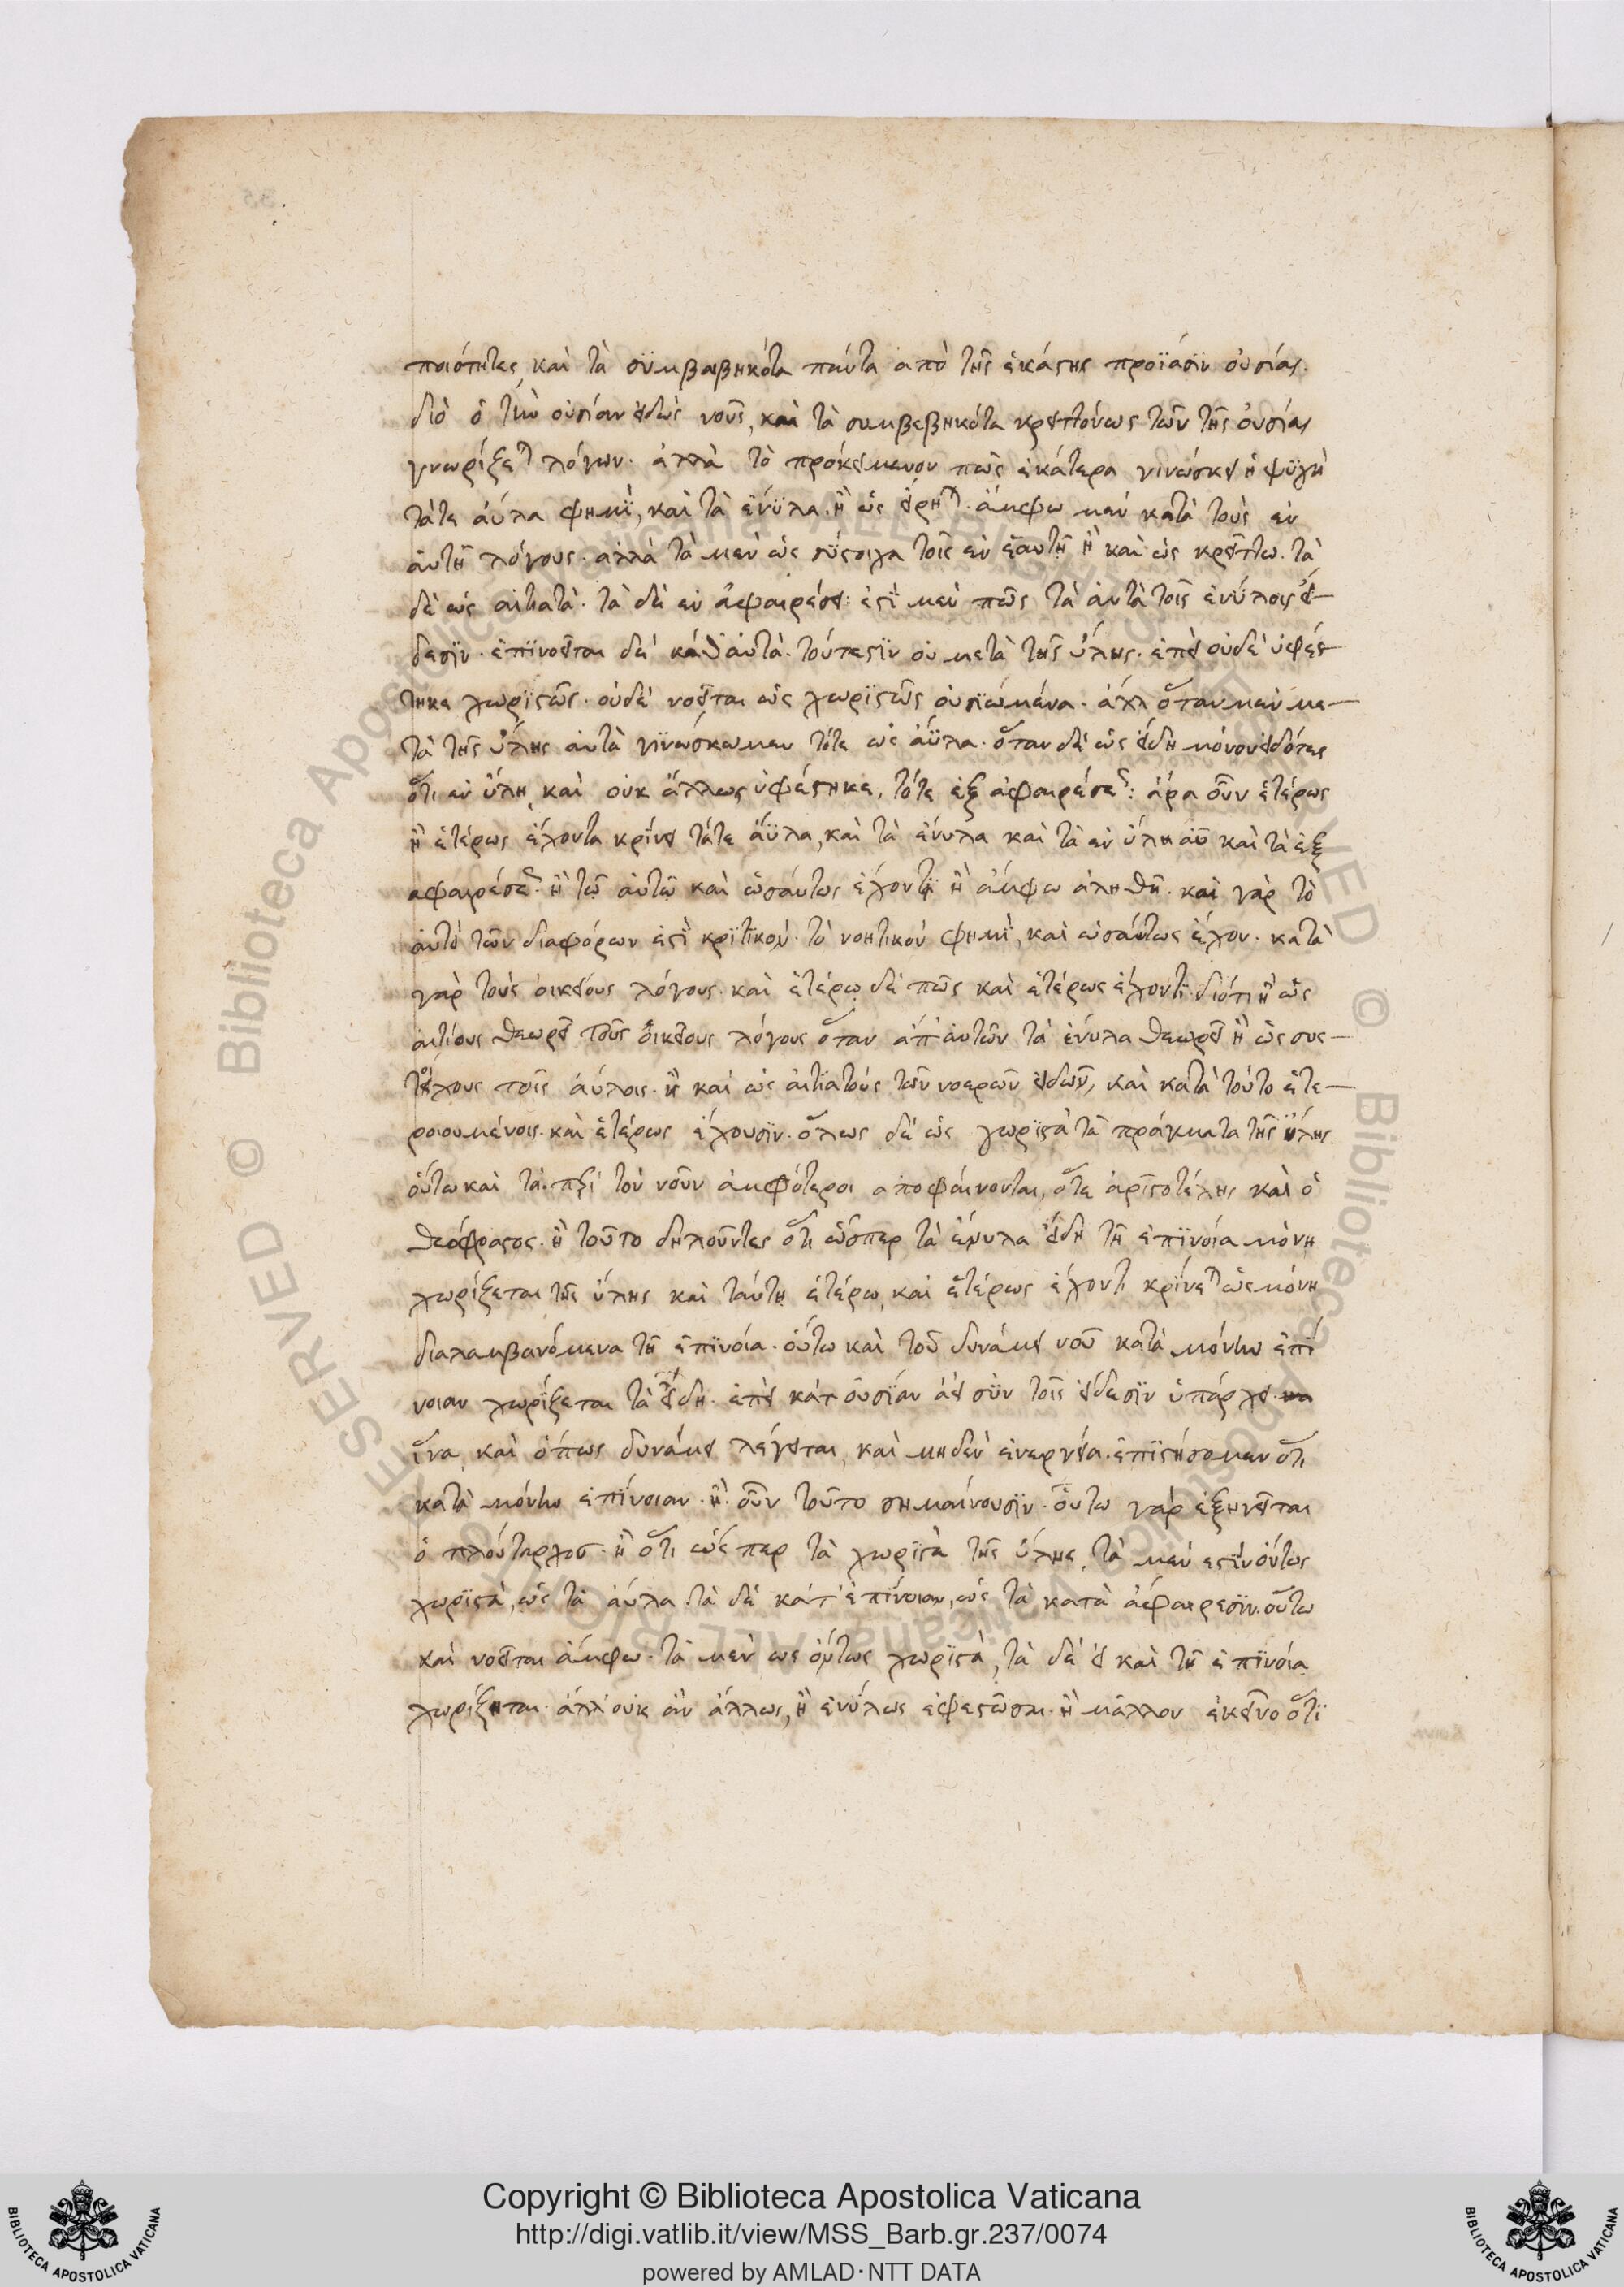 ποιότητες, καὶ τὰ συμβεβηκότα πάντα ἀπὸ τῆς ἑκάστης προϊάσιν οὐσίας.
διὸ ὁ τὴν οὐσίαν εἰδὼς νοῦς, καὶ τὰ συμβεβηκότα κρειττόνως τῶν τῆς οὐσίας
γνωρίζει λόγων. ἀλλὰ τὸ προκείμενον πῶς ἑκάτερα γινώσκει ἡ ψυχὴ
τάτε ἄϋλα φημὶ, καὶ τὰ ἔνϋλα. ἢ ὡς εἴρηται. ἄμφω μὲν κατὰ τοὺς ἐν
αὐτῇ λόγους. ἀλλὰ τὰ μὲν ὡς σύστοιχα τοῖς ἐν ἑαυτῇ ἢ καὶ ὡς κρείττω. τὰ
δὲ ὡς αἰτιατὰ. τὰ δὲ ἐν ἀφαιρέσει: ἐστὶ μέν πως τὰ αὐτὰ τοῖς ἐνύλοις εἴ-
δεσιν. ἐπινοεῖται δὲ καθ' αὑτὰ. τουτέστιν οὐ μετὰ τῆς ὕλης. ἐπεὶ οὐδὲ ὑφέσ
τηκε χωριστῶς. οὐδὲ νοεῖται ὡς χωριστῶς οὐσιωμένα. ἀλλ' ὅταν μὲν με-
τὰ τῆς ὕλης αὐτὰ γινώσκωμεν τότε ὡς ἄϋλα. ὅταν δὲ ὡς εἴδη μόνον εἰδότες
ὅτι ἐν ὕλῃ, καὶ οὐκ ἄλλως ὑφέστηκε, τότε ἐξ ἀφαιρέσεως: ἆρα οὖν ἑτέρως
ἢ ἑτέρως ἔχοντα κρίνει τάτε ἄϋλα, καὶ τὰ ἔνυλα καὶ τὰ ἐν ὕλῃ αὖ καὶ τὰ ἐξ
ἀφαιρέσεως. ἢ τῷ αὐτῷ καὶ ὡσαύτως ἔχοντι ἢ ἄμφω ἀληθῆ. καὶ γὰρ τὸ
αὐτὸ τῶν διαφόρων ἐστὶ κριτικὸν. τὸ νοητικὸν φημὶ, καὶ ὡσαύτως ἔχον. κατὰ
γὰρ τοὺς οἰκείους λόγους. καὶ ἑτέρῳ δέ πως καὶ ἑτέρως ἔχοντι διότι ἢ ὡς
αἰτίους θεωρεῖ τοὺς οἰκείους λόγους ὅταν ἀπ' αὐτῶν τὰ ἔνυλα θεωρεῖ ἢ ὡς συσ-
τοίχους τοῖς ἀΰλοις. ἢ καὶ ὡς αἰτιατούς τῶν νοερῶν εἰδῶν, καὶ κατὰ τοῦτο ἑτε-
ροιουμένοις. καὶ ἑτέρως ἔχουσιν. ὅλως δὲ ὡς χωριστὰ τὰ πράγματα τῆς ὕλης
οὕτω καὶ τὰ περὶ τὸν νοῦν ἀμφότεροι ἀποφαίνονται, ὅτε ἀριστοτέλης καὶ ὁ
θεόφραστος. ἢ τοῦτο δηλοῦντες ὅτι ὥσπερ τὰ ἔνυλα εἴδη τῇ ἐπινοίᾳ μόνῃ
χωρίζεται τῆς ὕλης καὶ ταύτῃ ἑτέρῳ, καὶ ἑτέρως ἔχοντι κρίνεται ὡς μόνῃ
διαλαμβανόμενα τῇ ἐπινοίᾳ. οὕτω καὶ τοῦ δυνάμει νοῦ κατὰ μόνην ἐπί
νοιαν χωρίζεται τὰ εἴδη. ἐπεὶ κατ' οὐσίαν ἀεὶ σὺν τοῖς εἴδεσιν ὑπάρχει.
ἵνα, καὶ ὅπως δυνάμει λέγεται, καὶ μηδὲν ἐνεργείᾳ. ἐπιστήσομεν ὅτι
κατὰ μόνην ἐπίνοιαν. ἢ οὖν τοῦτο σημαίνουσιν. οὕτω γὰρ ἐξηγεῖται
ὁ πλούταρχος. ἢ ὅτι ὥσπερ τὰ χωριστὰ τῆς ὕλης, τὰ μὲν ἐστὶν ὄντως
χωριστά, ὡς τὰ ἄυλα. τὰ δὲ κατ' ἐπίνοιαν, ὡς τὰ κατὰ ἀφαίρεσιν. οὕτω
καὶ νοεῖται ἄμφω. τὰ μὲν ὡς ὄντως χωριστὰ, τὰ δὲ εἰ καὶ τῇ ἐπινοίᾳ
χωρίζηται. ἀλλ' οὐκ ἂν ἄλλως, ἢ ἐνύλως ἐφεστῶσαι. ἢ μᾶλλον ἐκεῖνο ὅτι
Copyright © Biblioteca Apostolica Vaticana
http://digi.vatlib.it/view/MSS_Barb.gr.237/0074
powered by AMLAD·NTT DATA